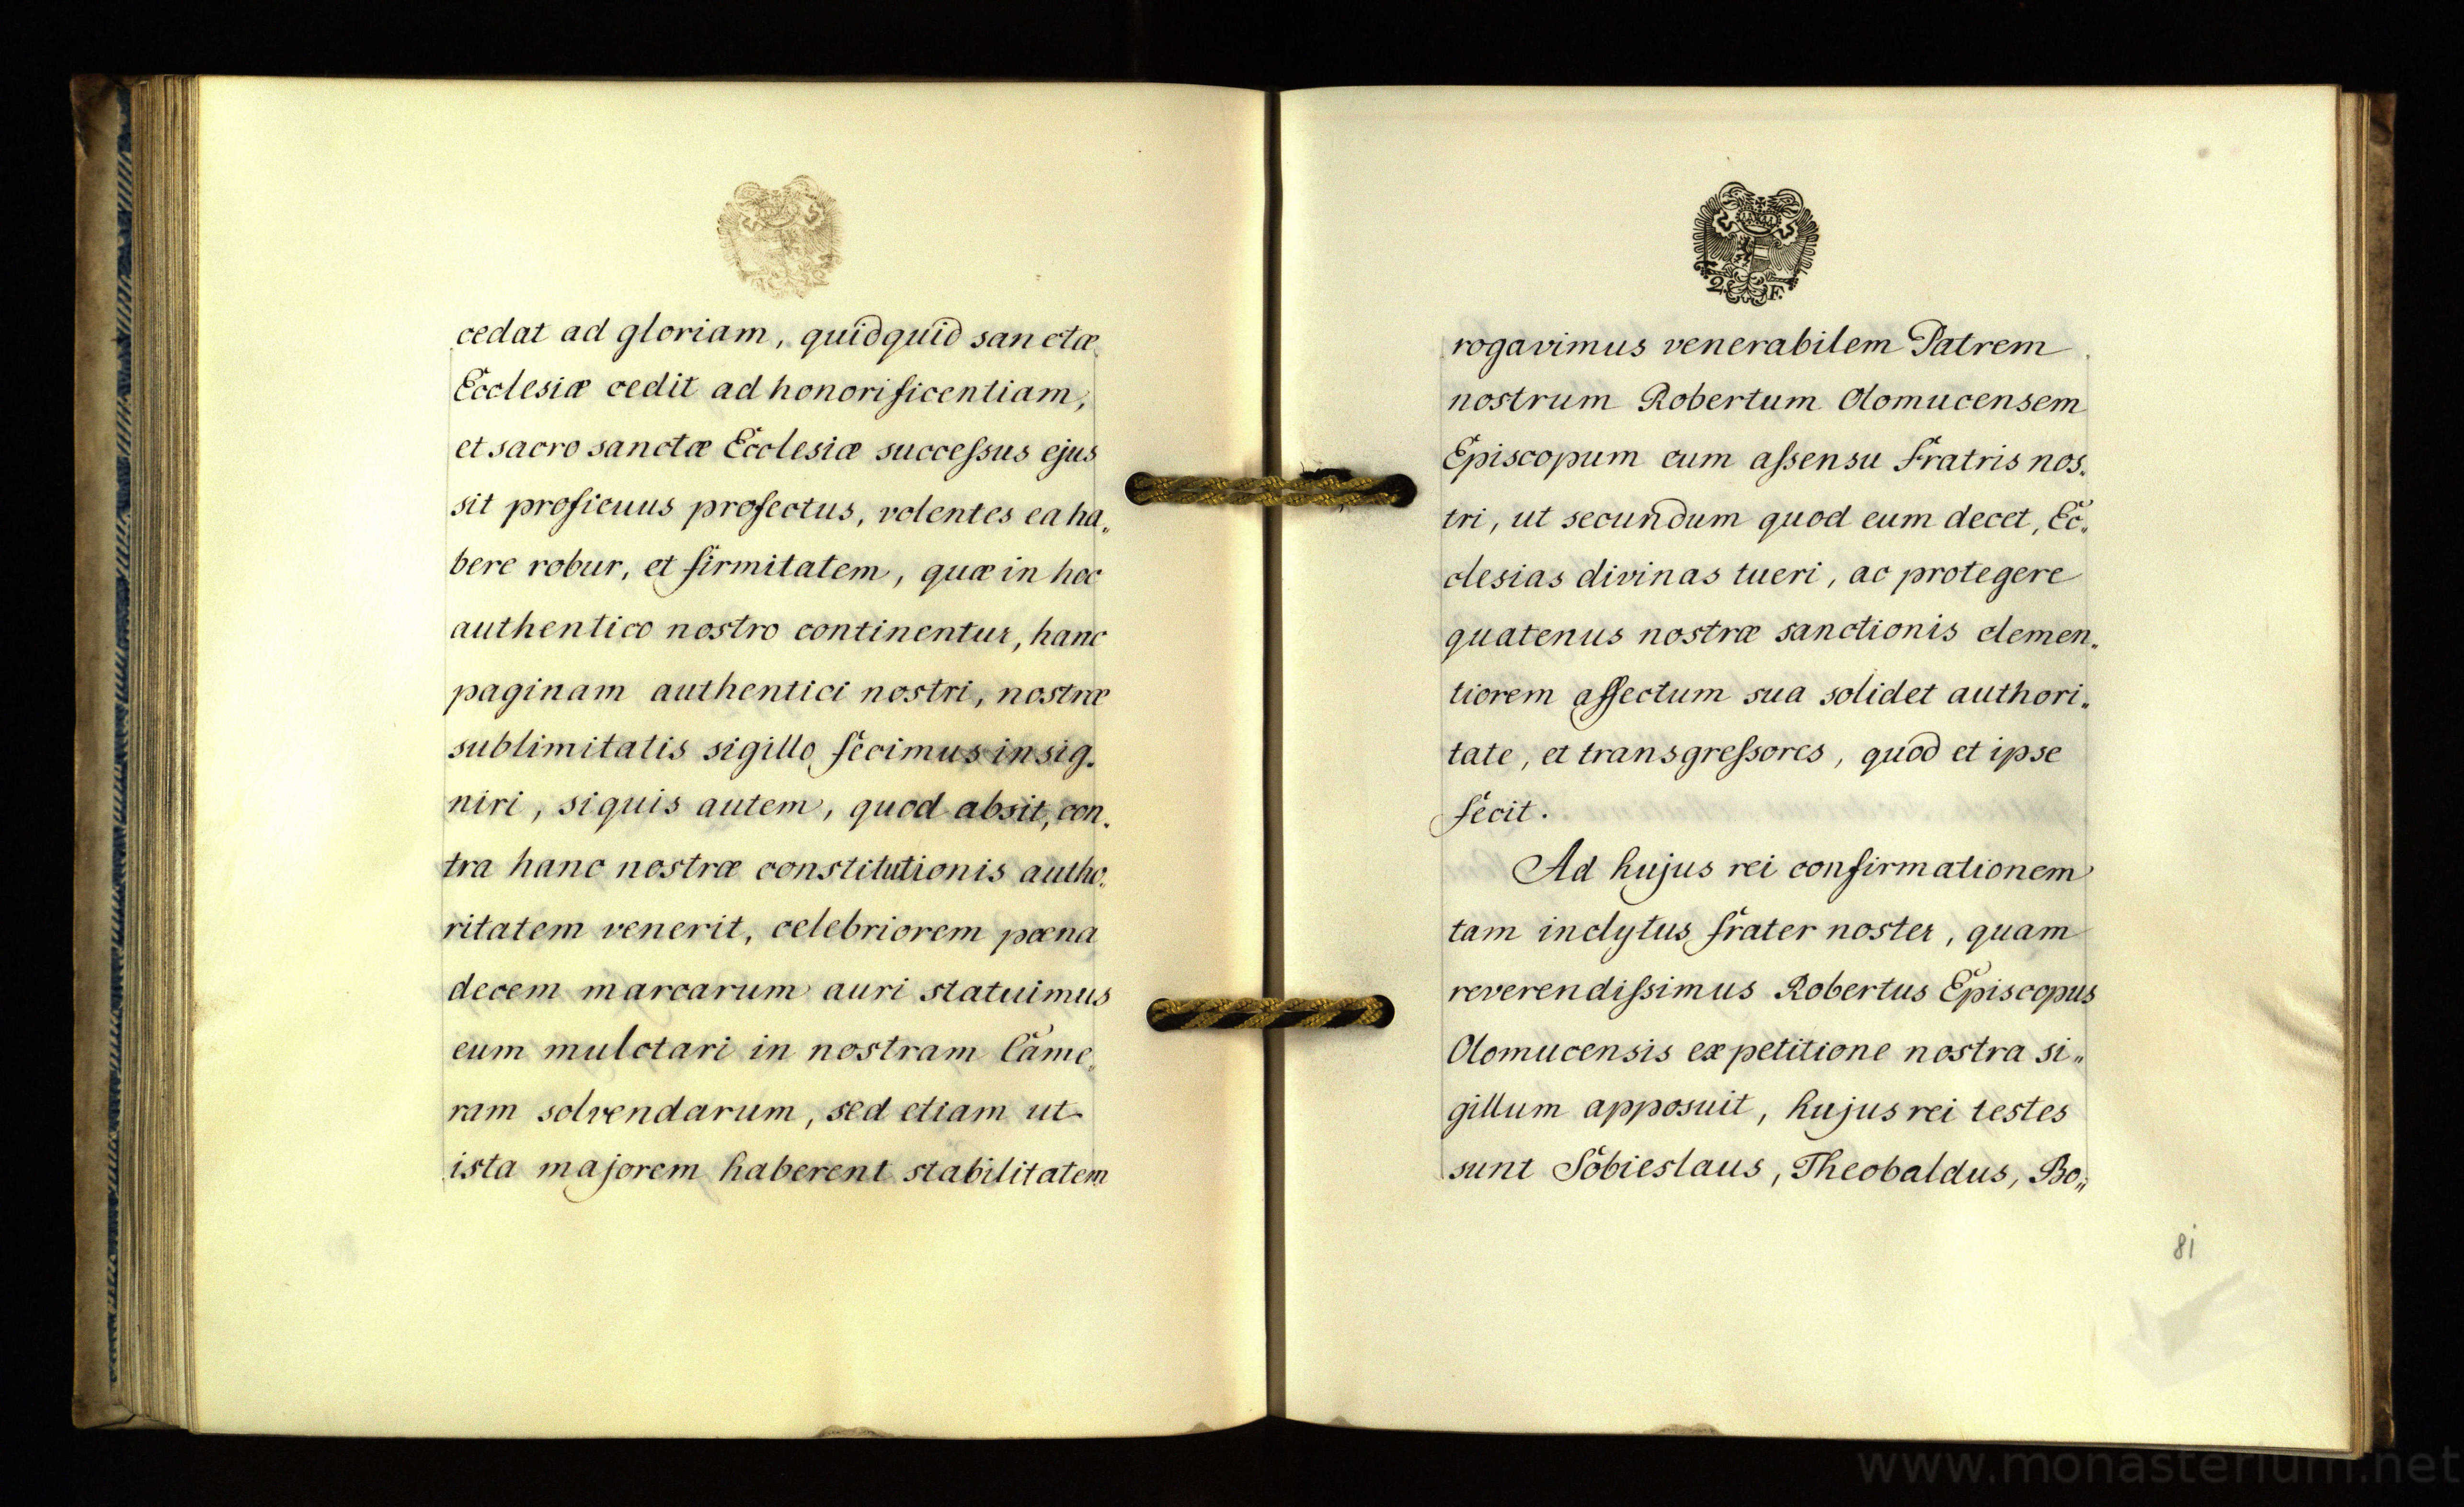 cedat ad gloriam, quidquid sanctæ
Ecclesiæ cedit ad honorificentiam,
et sacro sanctæ Ecclesiæ succeſsus ejus
sit proficuus profectus, volentes ea ha„
bere robur, et firmitatem, quæ in hoc
authentico nostro continentur, hanc
paginam authentici nostri, nostræ
sublimitatis sigillo fecimus insig„
niri, siquis autem, quod absit, con„
tra hanc nostræ constitutionis autho„
ritatem venerit, celebriorem pœna
decem marcarum auri statuimus
eum mulctari in nostram Came„
ram solvendarum, sed etiam ut
ista majorem haberent stabilitatem
2. F.
rogavimus venerabilem Patrem
nostrum Robertum Olomucensem
Episcopum cum aſsensu Fratris nos„
tri, ut secundum quod eum decet, Ec„
clesias divinas tueri, ac protegere
quatenus nostræ sanctionis clemen„
tiorem affectum sua solidet authori„
tate, et transgreſsores, quod et ipse
fecit.
Ad hujus rei confirmationem
tam inclytus frater noster, quam
reverendiſsimus Robertus Episcopus
Olomucensis ex petitione nostra si„
gillum apposuit, hujus rei testes
sunt Sobieslaus, Theobaldus, Bo„
81
www.monasterium.net